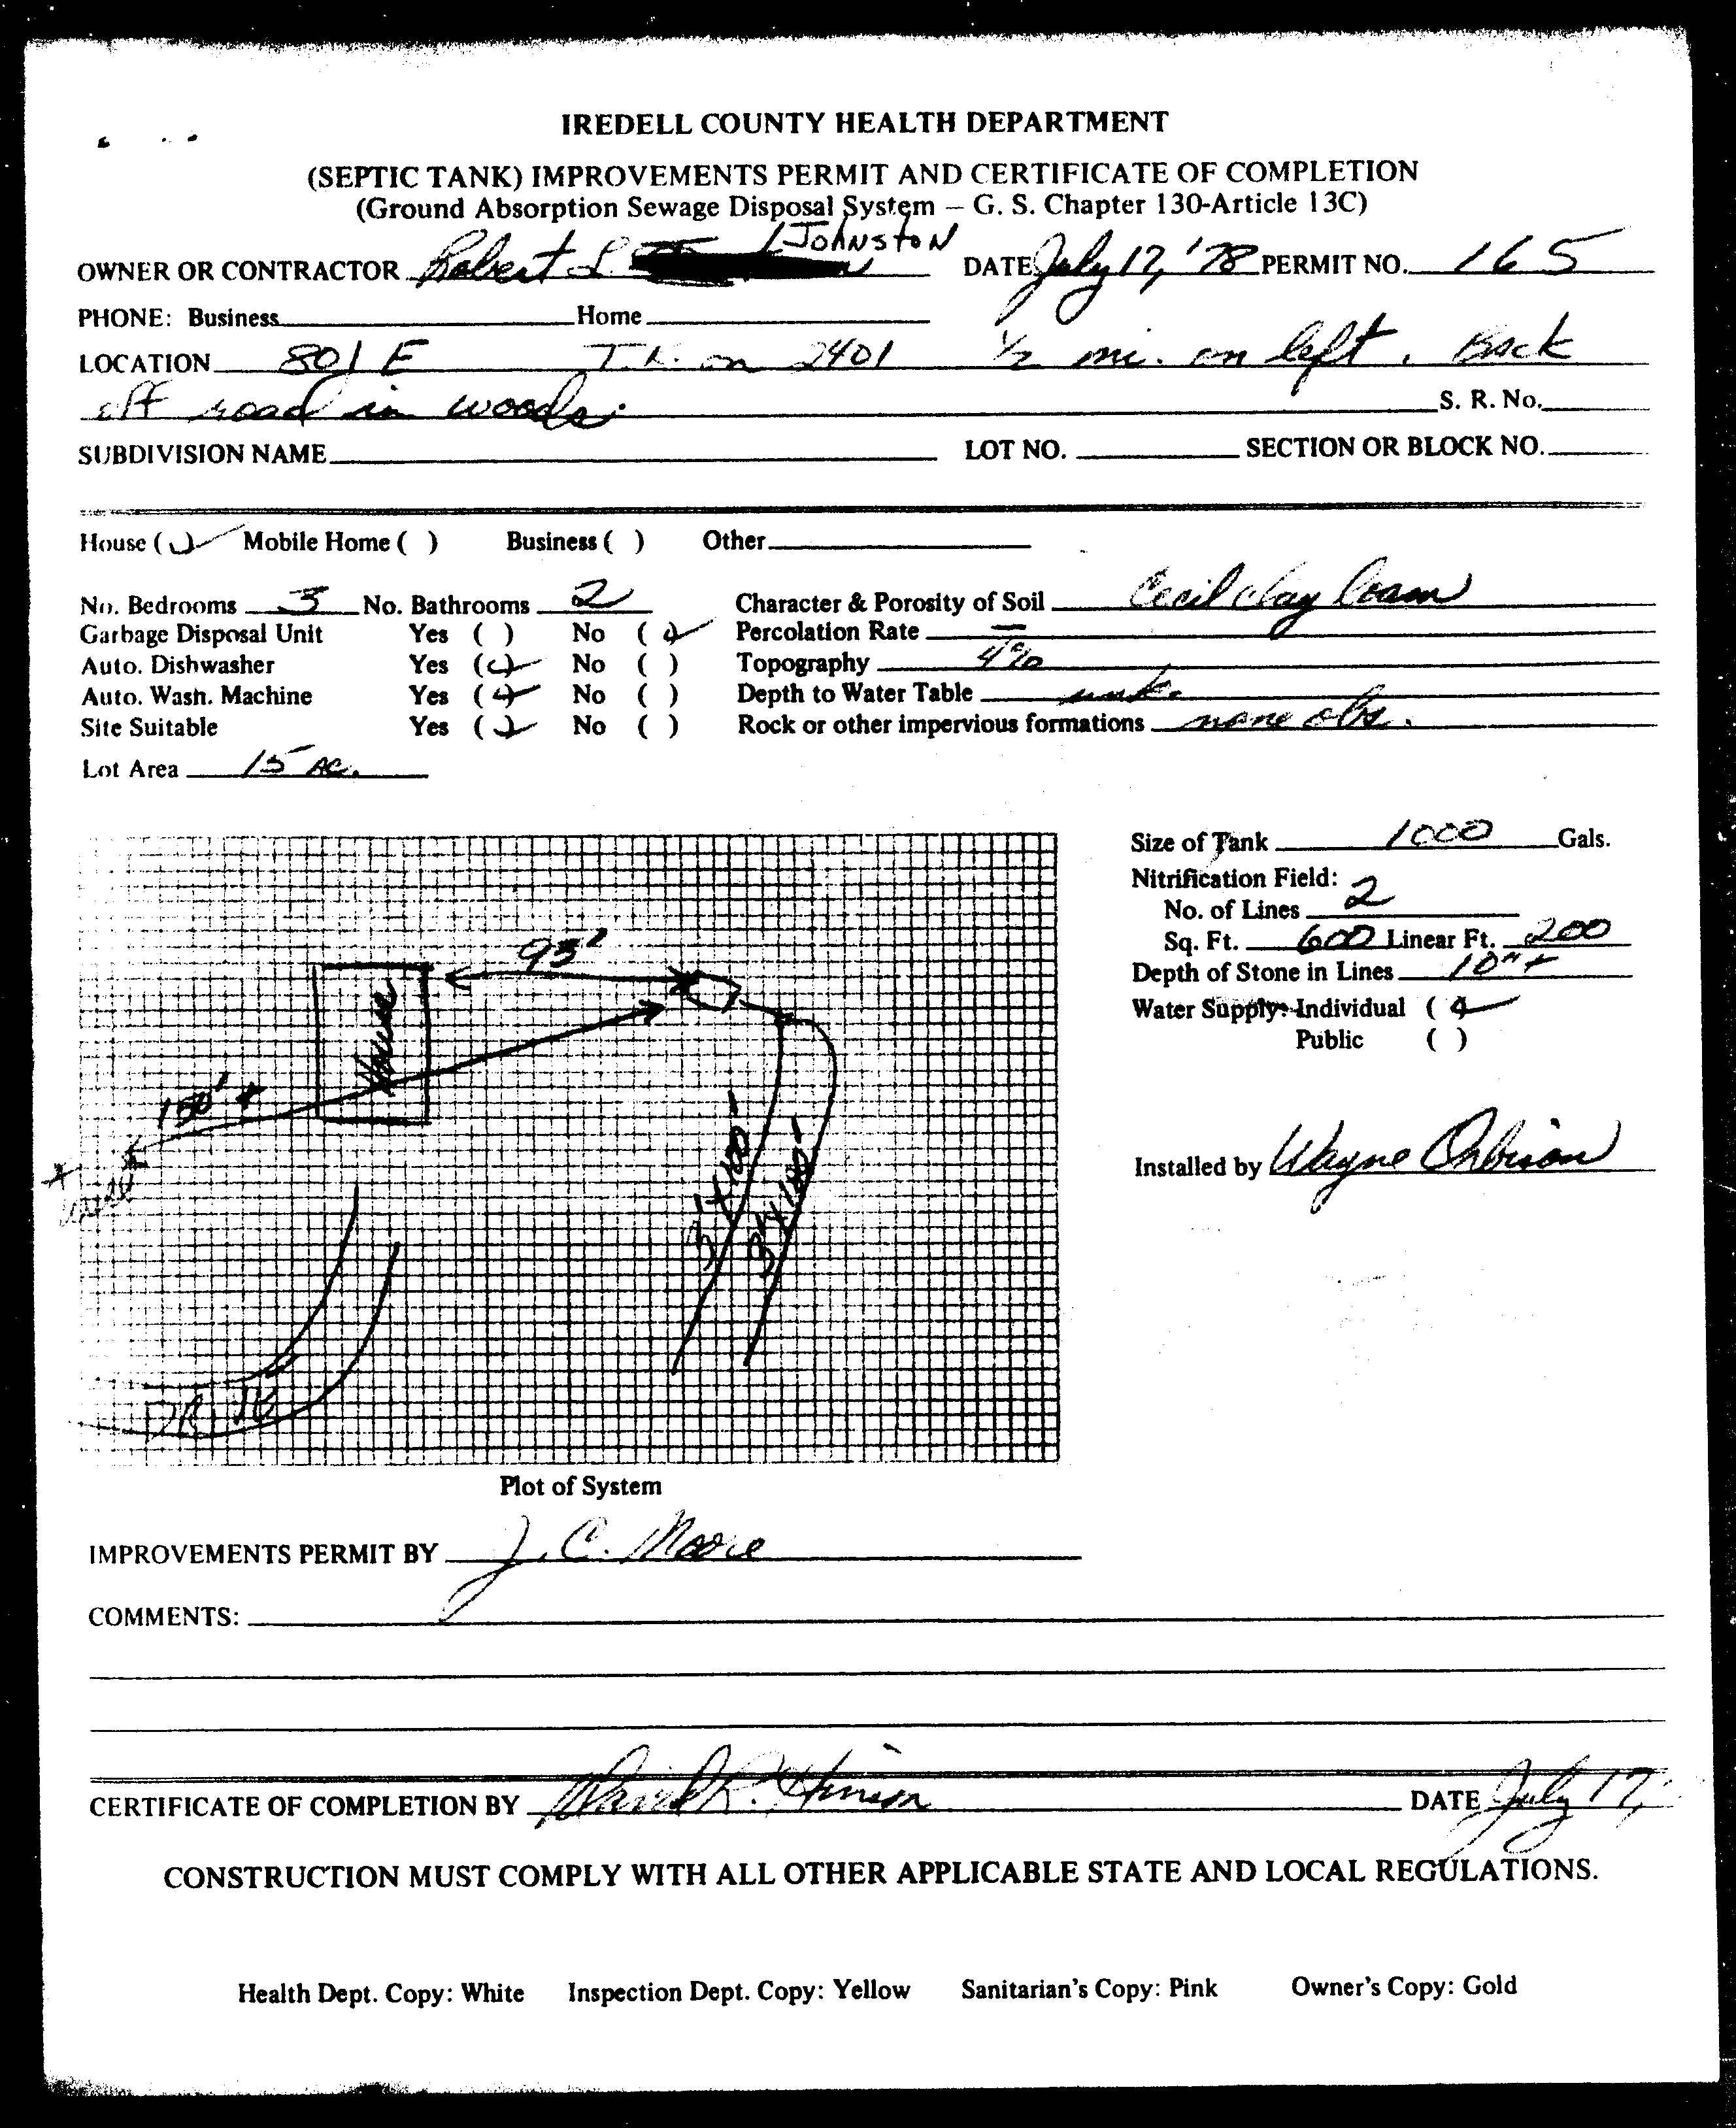 IREDELL COUNTY HEALTH DEPARTMENT
(SEPTIC TANK) IMPROVEMENTS PERMIT AND CERTIFICATE OF COMPLETION
(Ground Absorption Sewage Disposal System – G. S. Chapter 130-Article 13C)
OWNER OR CONTRACTOR Robert L. Johnston DATE July 17, '78 PERMIT NO. 165
PHONE: Business Home
LOCATION 801 E on 2401 1/2 mi. on left. Back
off road in woods. S. R. No.
SUBDIVISION NAME LOT NO. SECTION OR BLOCK NO.
House (✓) Mobile Home ( ) Business ( ) Other
No. Bedrooms 3 No. Bathrooms 2 Character & Porosity of Soil Cecil clay loam
Garbage Disposal Unit Yes ( ) No (✓) Percolation Rate —
Auto. Dishwasher Yes (✓) No ( ) Topography 4%
Auto. Wash. Machine Yes (✓) No ( ) Depth to Water Table unk.
Site Suitable Yes (✓) No ( ) Rock or other impervious formations none obs.
Lot Area 15 AC.
Size of Tank 1000 Gals.
Nitrification Field:
No. of Lines 2
Sq. Ft. 600 Linear Ft. 200
Depth of Stone in Lines 10"+
Water Supply: Individual (✓)
Public ( )
Installed by Wayne
93'
House
150'+
3'x100'
3'x100'
DRIVE
Plot of System
IMPROVEMENTS PERMIT BY J. C. Moore
COMMENTS:
CERTIFICATE OF COMPLETION BY David R. Hinson DATE July 17,
CONSTRUCTION MUST COMPLY WITH ALL OTHER APPLICABLE STATE AND LOCAL REGULATIONS.
Health Dept. Copy: White Inspection Dept. Copy: Yellow Sanitarian's Copy: Pink Owner's Copy: Gold